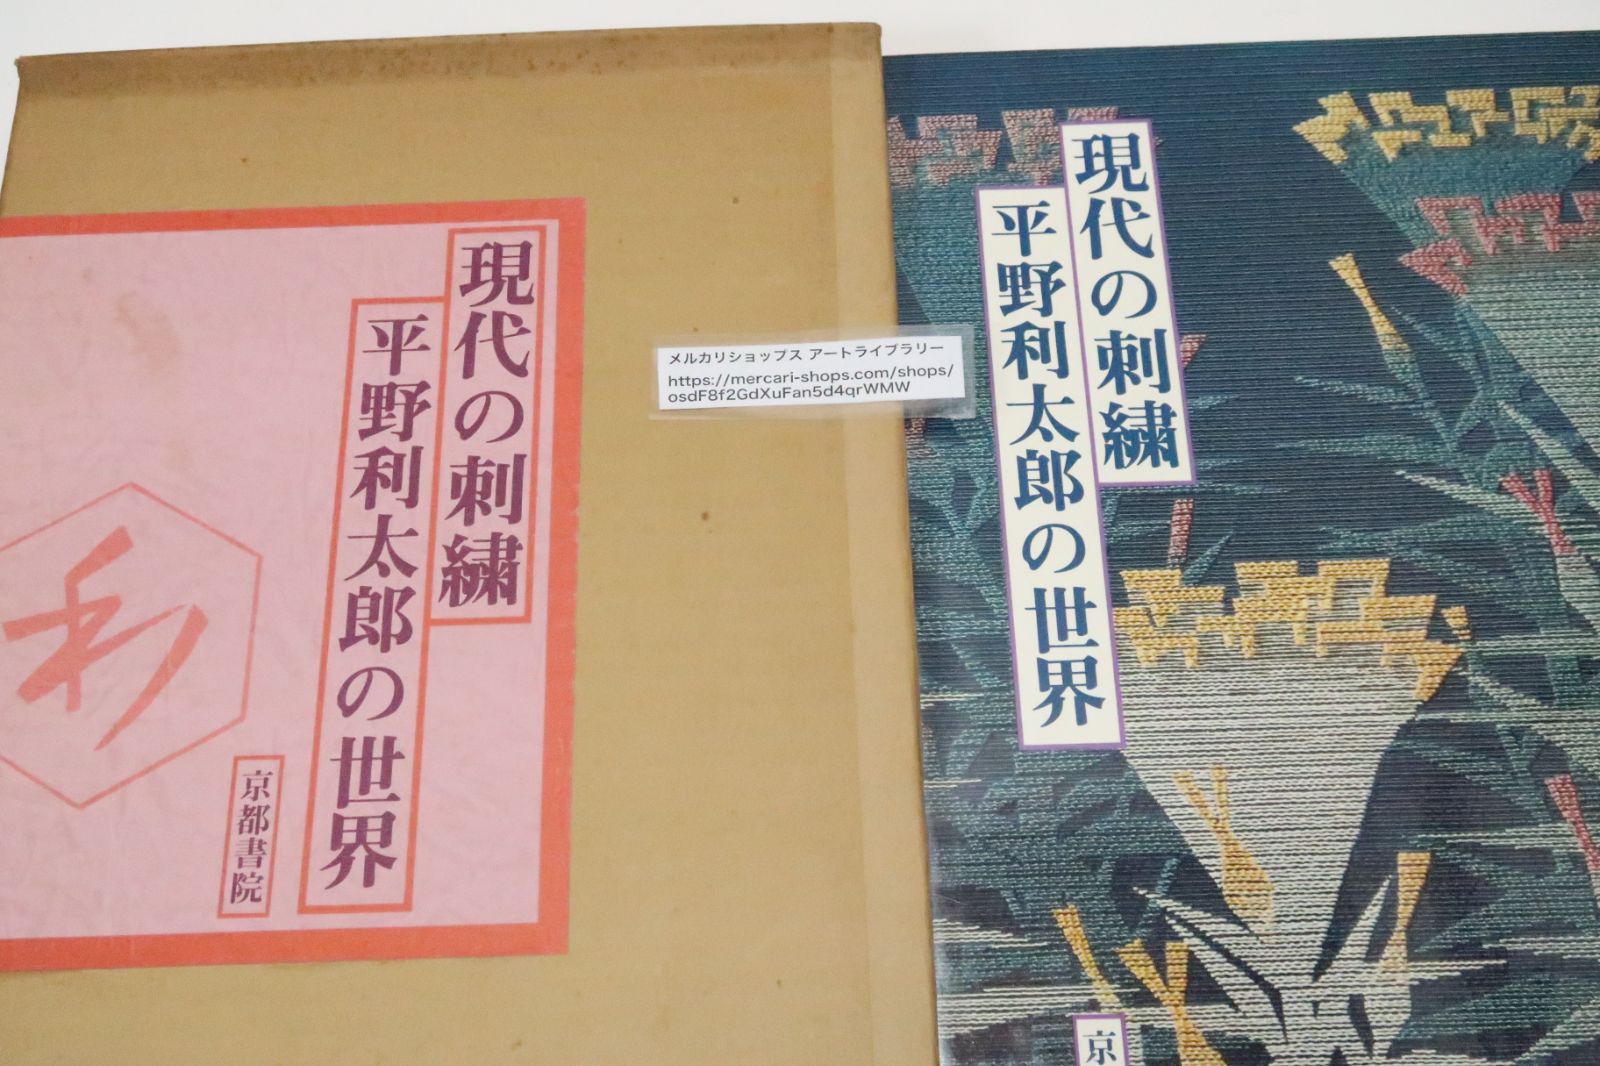 現代の刺繍
平野利太郎の世界
利
京都書院
メルカリショップス アートライブラリー
https://mercari-shops.com/shops/
osdF8f2GdXuFan5d4qrWMW
現代の刺繍
平野利太郎の世界
京